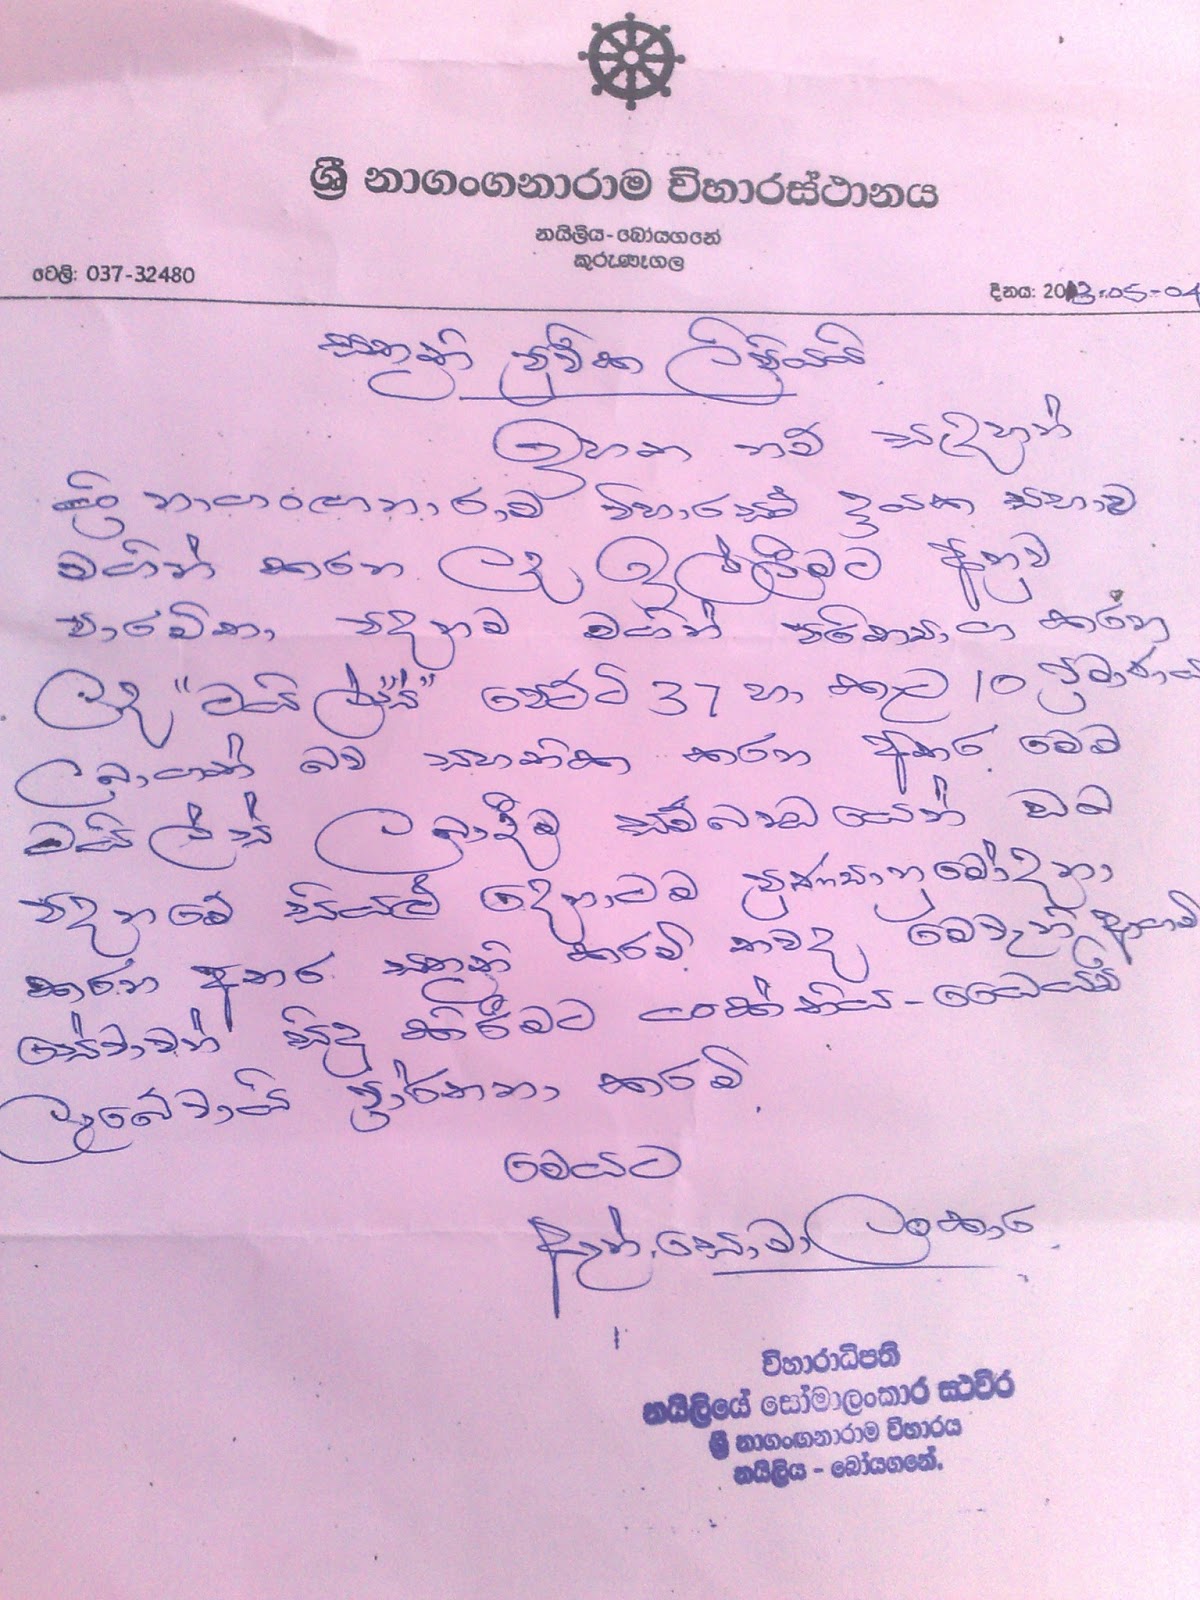 ශ්‍රී නාගංගනාරාම විහාරස්ථානය
නයිලිය-බෝයගනේ
කුරුණෑගල
ටෙලි: 037-32480
දිනය: 2013-05-04
ස්තුති පූර්වක ලිපියයි
ඉහත නම් සඳහන්
ශ්‍රී නාගංඟනාරාම විහාරස්ථ දායක සභාව
මගින් කරන ලද ඉල්ලීමට අනුව
පාරමිතා පදනම මගින් පරිත්‍යාග කරන
ලද "ටයිල්ස්" පෙට්ටි 37 හා කැට 10 ප්‍රමාණය
ලබාගත් බව සහතික කරන අතර මෙම
ටයිල්ස් ලබාදීම සම්බන්ධයෙන් ඔබ
පදනමේ සියලු දෙනාටම පුණ්‍යානුමෝදනා
කරන අතර ස්තුති කරමි තවද මෙවැනි ආගමි
සේවාවන් සිදු කිරීමට ශක්තිය-ධෛර්යය
ලැබේවායි ප්‍රාර්ථනා කරමි
මෙයට
ඇන්. සොමාලංකාර
විහාරාධිපති
නයිලියේ සෝමාලංකාර ස්ථවිර
ශ්‍රී නාගංඟනාරාම විහාරය
නයිලිය - බෝයගනේ.